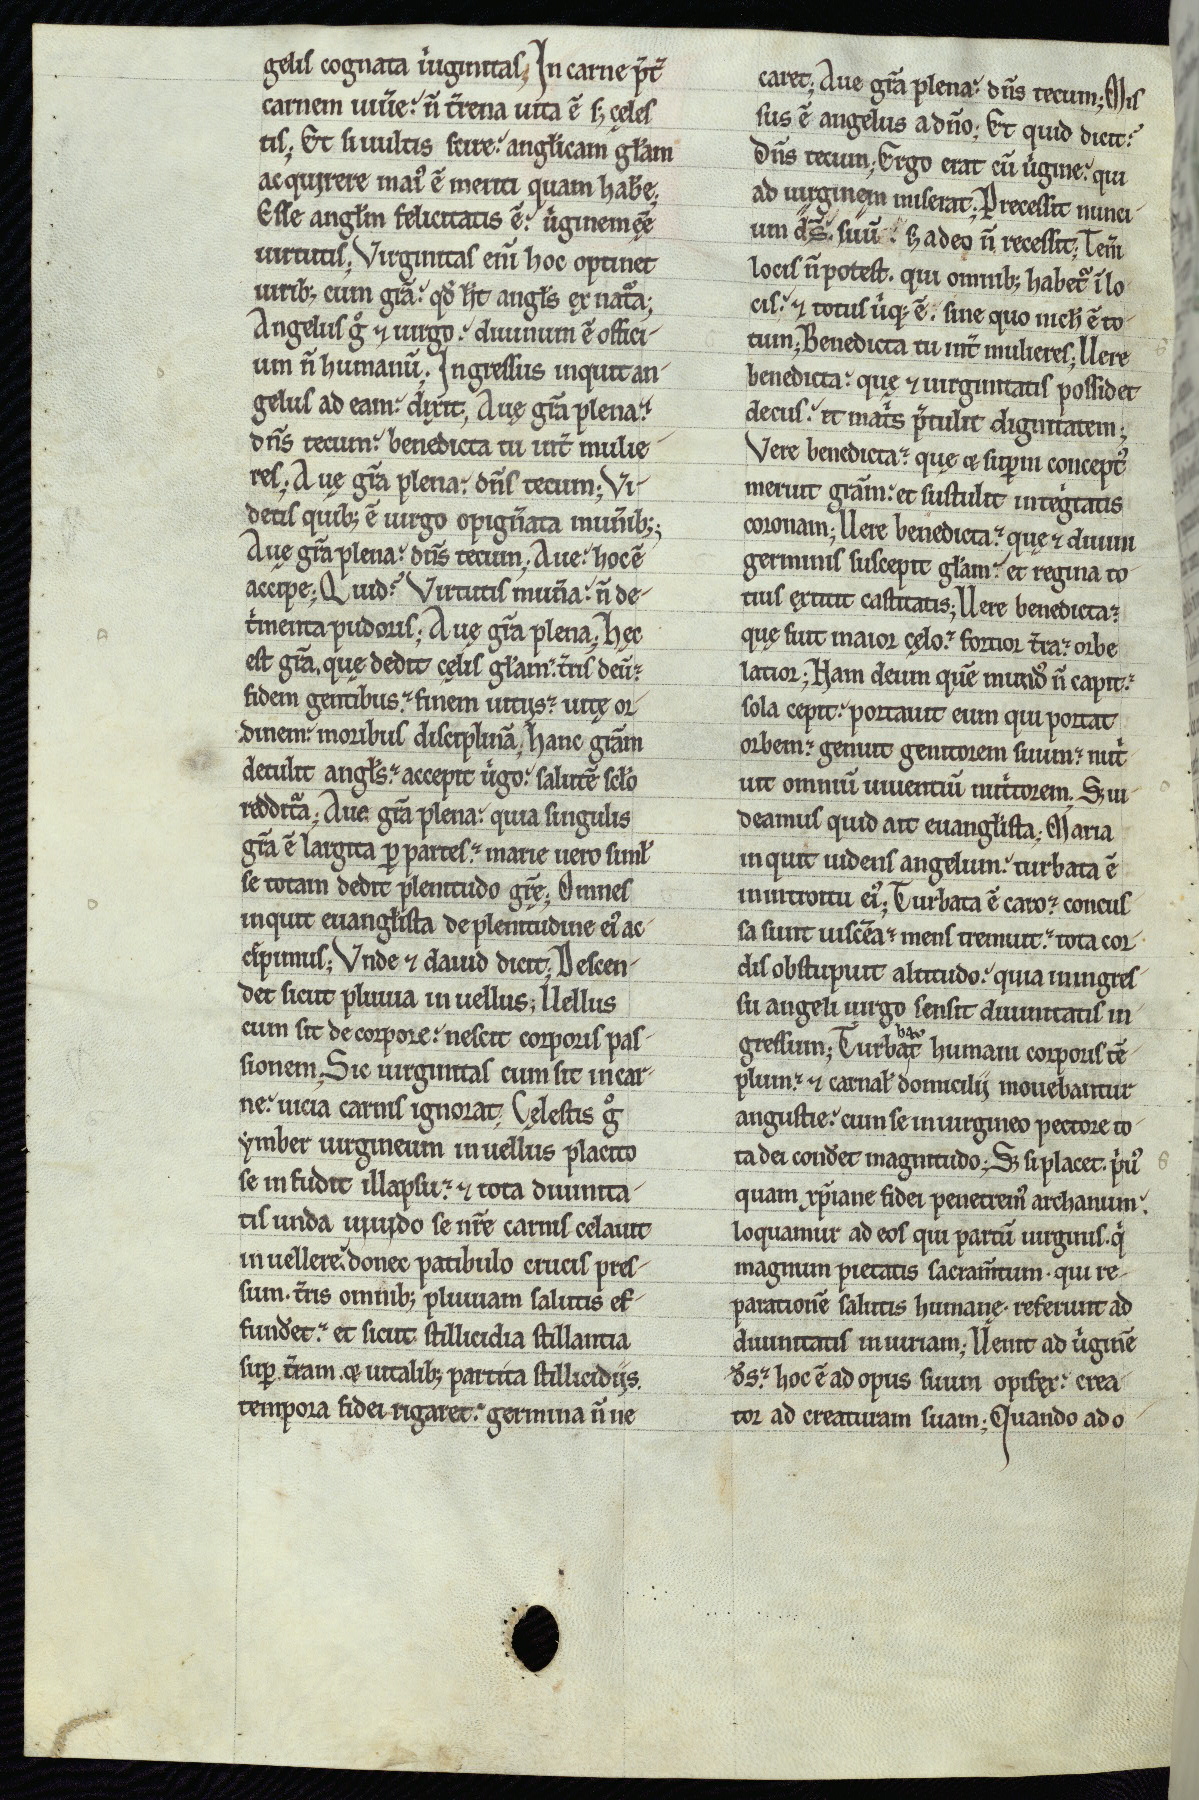 gelis cognata u̍ginitas; In carne p̄t̄
carnem uiu̍e: n̄ t̄rena uita ē s; cęles
tis; Et si uultis scire: angl̄icam gl̄am
acquirere mai᷒ ē meriti quam hab̄e;
Esse angl̄m felicitatis ē: u̍ginem ēe
uirtutis; Virginitas eni̅ hoc optinet
uirib; cum gr̄a: qd̄ h̄t angl̄s ex nat᷑a;
Angelus g̊ ⁊ uirgo: diuinum ē offici-
um n̄ humanū. Ingressus inquit an-
gelus ad eam: dixit, Auę gr̄a plena:
dn̄s tecum: benedicta tu int̄ mulie-
res; Auę gr̄a plena: dn̄s tecum; Vi-
detis quib; ē uirgo opign̄ata mun̄ib;;
Auę gr̄a plena: dn̄s tecum; Aue: hoc ē
accipe; Quid? Virtutis mun̄ia: n̄ de-
t̍menta pudoris; Auę gr̄a plena; Hęc
est gr̄a, quę dedit cęlis gl̄am: t̄ris deū:
fidem gentibus: finem uitijs: uitę or
dinem: moribus disciplinā, Hanc gr̄am
detulit angl̄s: accepit u̍go: salutē scl̄o
reddit᷑a; Aue gr̄a plena: quia singulis
gr̄a ē largita ꝑ partes: marie uero simł
se totam dedit plenitudo gr̄ę; Omnes
inquit euangl̄ista de plenitudine ei᷒ ac
cepimus; Vnde ⁊ dauid dicit; Descen-
det sicut pluuia in uellus; Uellus
cum sit de corpore: nescit corporis pas-
sionem; Sic uirginitas cum sit in car-
ne: uicia carnis ignorat; Cęlestis g̊
ymber uirgineum in uellus placito
se infudit illapsu: ⁊ tota diuinita-
tis unda se nr̄e carnis celauit
in uellere: donec patibulo crucis pres-
sum. t̄ris omnib; pluuiam salutis ef-
fund̄et: et sicut stillicidia stillantia
suꝑ t̄ram. uitalib; partita stillicidijs.
tempora fidei rigaret: germina n̄ ne
caret; Aue gr̄a plena: dn̄s tecum; Mis
sus ē angelus a dn̄o; Et quid dicit:
Dn̄s tecum; Ergo erat cū u̍gine: qui
ad uirginem miserat; P̄recessit nunci-
um dn̄s suū: s; a deo n̄ recessit; Ten̄i
locis n̄ potest. qui omnib; habet᷑ i̅ lo
cis: ⁊ totus u̍q; ē. sine quo nich̄ ē to-
tum; Benedicta tu int̄ mulieres; Uere
benedicta: quę ⁊ uirginitatis possidet
decus: et mat̍s p̄tulit dignitatem;
Vere benedicta: que suꝑni concept᷒
meruit gr̄am: et sustulit integ̍tatis
coronam; Uere benedicta: quę ⁊ diuini
germinis suscepit gl̄am: et regina to-
tius extitit castitatis; Uere benedicta:
quę fuit maior cęlo: fortior t̄ra: orbe
latior; Nam deum quē mund᷒ n̄ capit:
sola cepit: portauit eum qui portat
orbem: genuit genitorem suum: nut̍
uit omniū uiuentiū nut̍torem; S; ui-
deamus quid ait euangl̄ista; Maria
inquit uidens angelum: turbata ē
in introitu ei᷒; Turbata ē caro: concus
sa sunt uisc̄ea: mens tremuit: tota cor-
dis obstupuit altitudo: quia in ingres-
su angeli uirgo sensit diuinitatis in
gressum; Turbat᷑ humani corporis tē-
plum: ⁊ carnał domicilij mouebantur
angustie: cum se in uirgineo pectore to-
ta dei cond̄et magnitudo; S; si placet. p̍u᷒
quam xp̄iane fidei penetrem᷒ archanum:
loquamur ad eos qui partū uirginis. q̍
magnum pietatis sacram̄tum. qui re-
parationē salutis humanę. referunt ad
diuinitatis iniuriam; Uenit ad u̍ginē
d̄s: hoc ē ad opus suum opifex: crea
tor ad creaturam suam; Quando ad o-